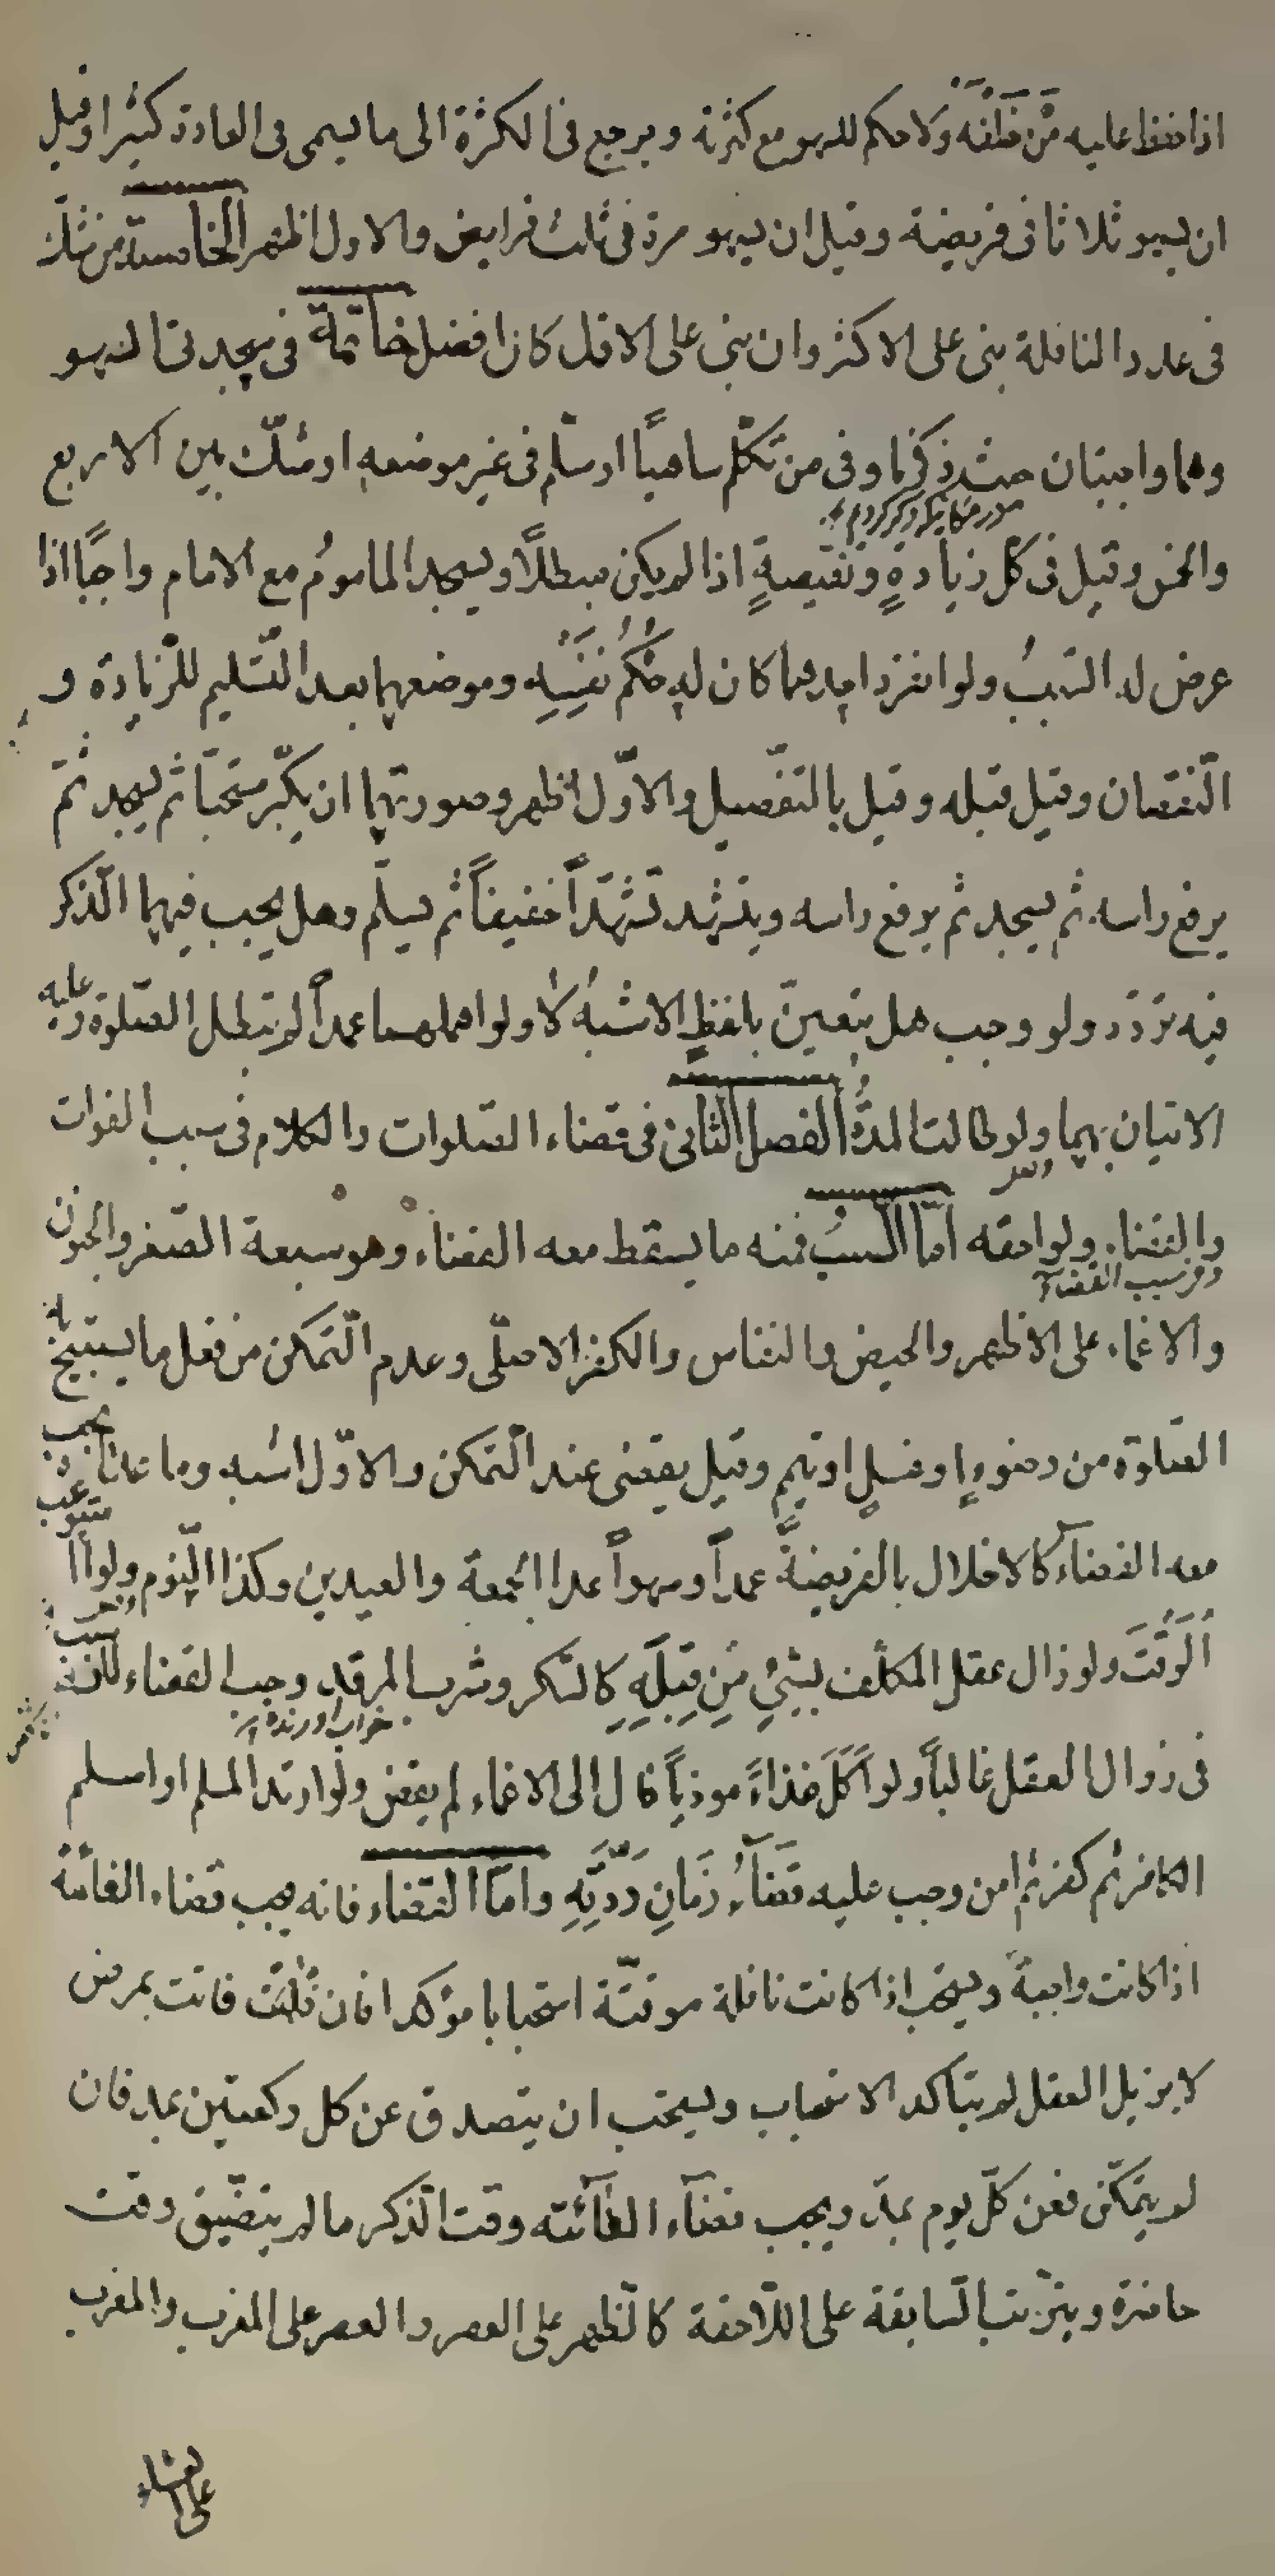 اذا حفظ عليه مَنْ خَلْفَهُ ولا حكم للسهو مع كثرته ويرجع فى الكثرة الى ما يسمى فى العادة كثيرا وقيل
ان يسهو ثلاثا فى فريضة وقيل ان يسهو مرة فى ثلث فرايض والاول اظهر الخامسة من شكّ
فى عدد النافلة بنى على الاكثر وان بنى على الاقل كان افضل خاتمة فى سجدتى السهو
وهما واجبتان حيث ذكرنا وفى من تكلّم ساهيًا او سلّم فى غير موضعه او شكّ بين الاربع
والخمس وقيل فى كلّ زيادةٍ ونقيصةٍ اذا لم يكن مبطلًا ويسجد المامومُ مع الامام واجبًا اذا
عرض له السّببُ ولو انفرد احدهما كان له حُكمُ نفسِهِ وموضعهما بعد التّسليم للزّيادة و
النّقصان وقيل قبله وقيل بالتفصيل والاوّل اظهر وصورتهما ان يكبّر مستحبّا ثم يسجد ثمّ
يرفع راسه ثم يسجد ثم يرفع راسه ويتشهد تشهّداً خفيفاً ثم يسلّم وهل يجب فيهما الذّكر
فيه تردّد ولو وجب هل يتعينّ بلفظٍ الاشبهُ لا ولو اهملهما عمداً لم تبطل الصّلوة وعليه
الاتيان بهما ولو طالت المدّةُ الفصل الثانى فى قضاء الصّلوات والكلام فى سبب الفوات
والقضاء ولواحقه امّا السّببُ فمنه ما يسقط معه القضاء وهو سبعة الصّغر والجنون
والاغماء على الاظهر والحيض والنفاس والكفر الاصلّى وعدم التّمكن من فعل ما يستبيح
الصّلوة من وضوءٍ او غسلٍ او تيمم وقيل يقضى عند التّمكن والاوّل اشبه وما عداه يجب
معه القضاۤء كالاخلال بالفريضةَّ عمداً وسهواً عدا الجمعة والعيدين وكذا النّوم ولو استوعب
الوَقْتَ ولو زال عقل المكلّف بشىْءٍ مِن قِبلِهِ كالسّكر وشرب المرقد وجب القضاء لانّه سبب
فى زوال العقل غالباً ولو اَكَلَ غذاءً موذياً فال الى الاغماء لم يقض ولو ارتد المسلم او اسلم
الكافر ثم كفر ثم امن وجب عليه قضاۤءُ زَمانِ رَدّتِهِ وامّا القضاء فانه يجب قضاء الفائتة
اذا كانت واجبةً ويستحب اذا كانت نافلة موقتّة استحبابا مؤكدا فان فاتت بمرض
لا يزيل العقل لم يتاكد الاستحباب ويستحب ان يتصدق عن كل ركعتين بمد فان
لم يتمكّن فعن كلّ يوم بمدّ ويجب قضاۤء الفاۤئتة وقت الذّكر ما لم يتضيّق وقت
حاضرة ويترّتب السّابقة على اللّاحقة كالظهر على العصر والعصر على المغرب والمغرب
على العشاء